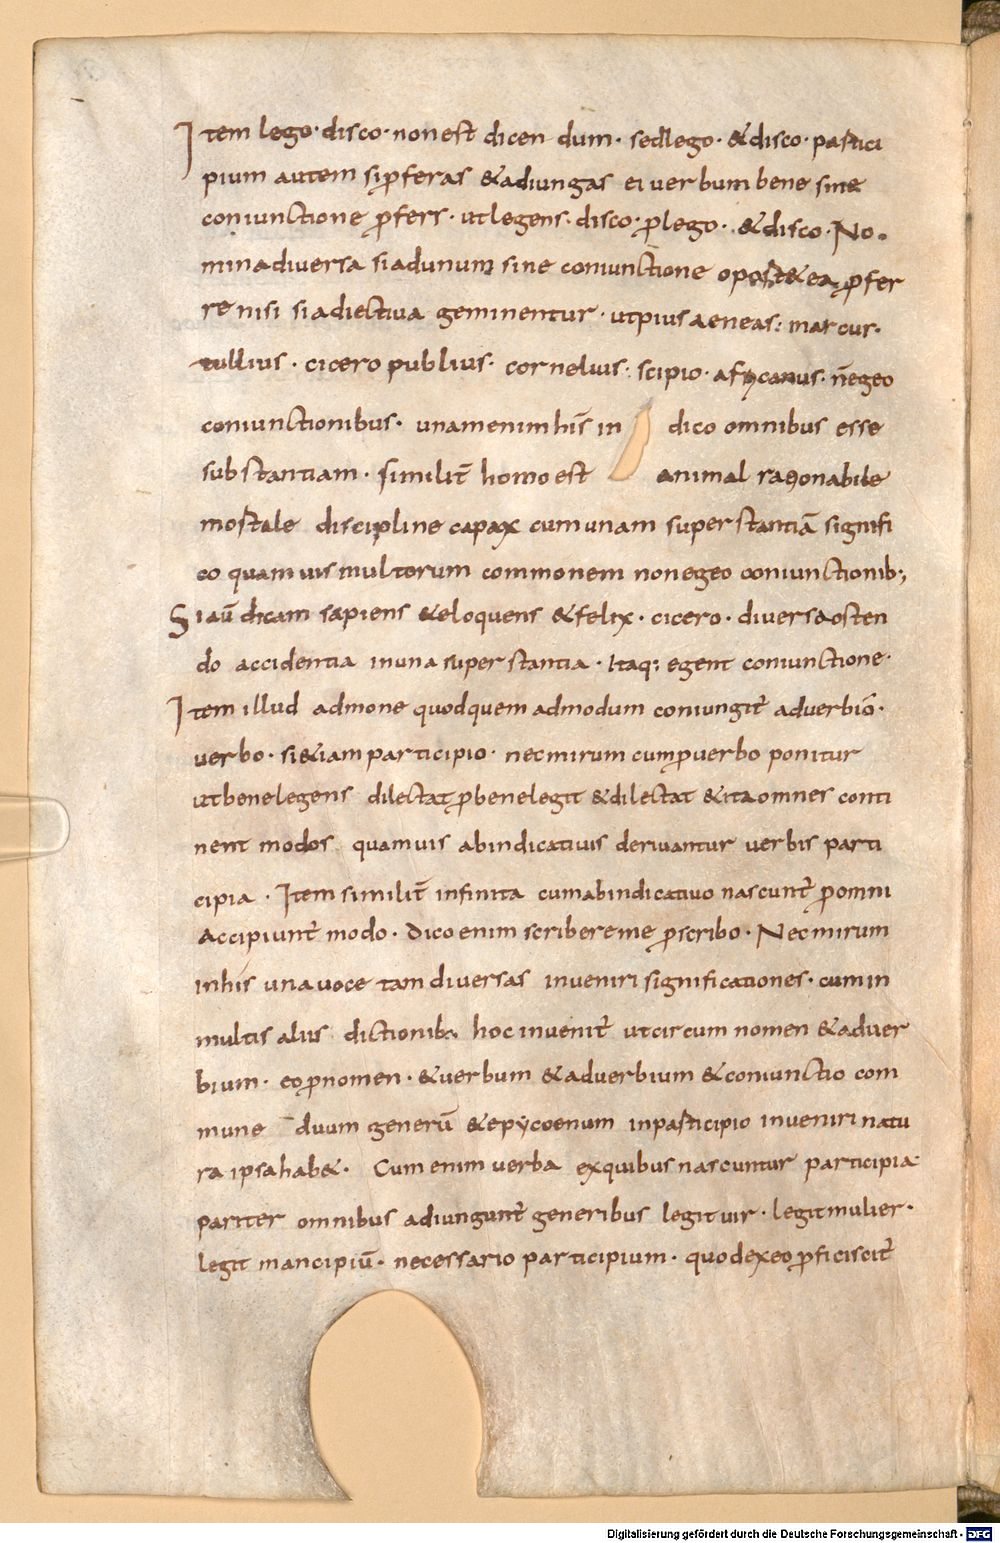 Item lego· disco· non est dicen dum· sed lego· & disco· partici
pium autem si p̄feras & adiungas ei verbum bene sine
coniunctione p̄fers· ut legens· disco· p̄ lego· & disco· No·
mina diversa si ad unum sine coniunctione oport& ea p̄fer
re nisi si adiectiva geminentur· ut pius aeneas: marcus·
tullius· cicero publius· cornelius: scipio· africanus· n̄ egeo
coniunctionibus· unam enim his̄ in dico omnibus esse
substantiam· similit̄ homo est animal racionabile
mortale discipline capax cum unam superstantiā signifi
co quam vis multorum commonem non egeo coniunctionib;
Si aū dicam sapiens & eloquens & felix· cicero· diversa osten
do accidentia in una superstantia· Itaq; egent coniunctione·
Item illud admone quod quem admodum coniungit̄ adverbiō·
verbo· si & iam participio· nec mirum cum p̄ verbo ponitur
ut bene legens dilectat p̄ bene legit & dilectat & ita omnes conti
nent modos quamvis ab indicativis derivantur verbis parti
cipia· Item similit̄ infinita cum ab indicativo nascunt̄ p̄ omni
Accipiunt̄ modo· Dico enim scribere me p̄ scribo· Nec mirum
in his una voce tam diversas inveniri significationes· cum in
multis aliis dictionib; hoc invenit̄ ut circum nomen & adver
bium· eo p̄nomen· & verbum & adverbium & coniunctio com
mune duum generū & epycoenum in participio inveniri natu
ra ipsa hab&· Cum enim verba ex quibus nascuntur participia·
pariter omnibus adiungunt̄ generibus legit vir· legit mulier·
legit mancipiū· necessario participium· quod ex eo p̄ficiscit̄
Digitalisierung gefördert durch die Deutsche Forschungsgemeinschaft - DFG